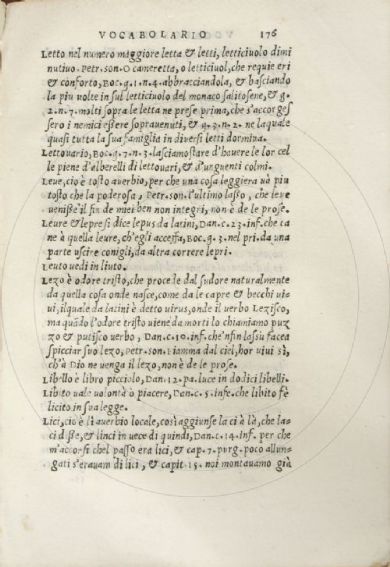 VOCABOLARIO 176
Letto nel numero maggiore letta & letti, letticiuolo dimi
nutiuo. Petr. son. O cameretta, o letticiuol, che requie eri
& conforto, Boc. g. 1. n. 4. abbracciandola, & basciando
la piu uolte in sul letticiuolo del monaco salitosene, & g.
2. n. 7. molti sopra le letta ne prese prima, che s'accorges
sero i nemici essere soprauenuti, & g. 9. n. 2. ne la quale
quasi tutta la sua famiglia in diuersi letti dormiua.
Lettouario, Boc. g. 7. n. 3. lasciamo stare d'hauere le lor cel
le piene d'alberelli di lettouari, & d'unguenti colmi.
Leue, cio è tosto auerbio, per che una cosa leggiera uà piu
tosto che la poderosa, Petr. son. l'ultimo lasso, che leue
uenisse il fin de miei ben non integri, non è de le prose.
Leure & lepre si dice lepus da latini, Dan. c. 23. inf. che ca
ne à quella leure, ch'egli acceffa, Boc. g. 3. nel pri. da una
parte uscire conigli, da altra correre lepri.
Leuto uedi in liuto.
Lezo è odore tristo, che procede dal sudore naturalmente
da quella cosa onde nasce, come da le capre & becchi uia
ui, il quale da latini è detto uirus, onde il uerbo Lezisco,
ma quãdo l'odore tristo uiene da morti lo chiamiamo puz
zo & putisco uerbo, Dan. c. 10. inf. che'nfin lassù facea
spicciar suo lezo, Petr. son. Fiamma dal ciel, hor uiui sì,
ch'à Dio ne uenga il lezo, non è de le prose.
Libello è libro picciolo, Dan. 12. pa. luce in dodici libelli.
Libito uale uolontà o piacere, Dan. c. 5. inf. che libito fè
licito in sua legge.
Lici, cio è lì auerbio locale, così aggiunse la ci à là, che la-
ci disse, & linci in uece di quindi, Dan. c. 14. inf. per che
m'accorsi che'l passo era lici, & cap. 7. purg. poco allun-
gati s'erauam di lici, & capit. 15. noi montauamo già